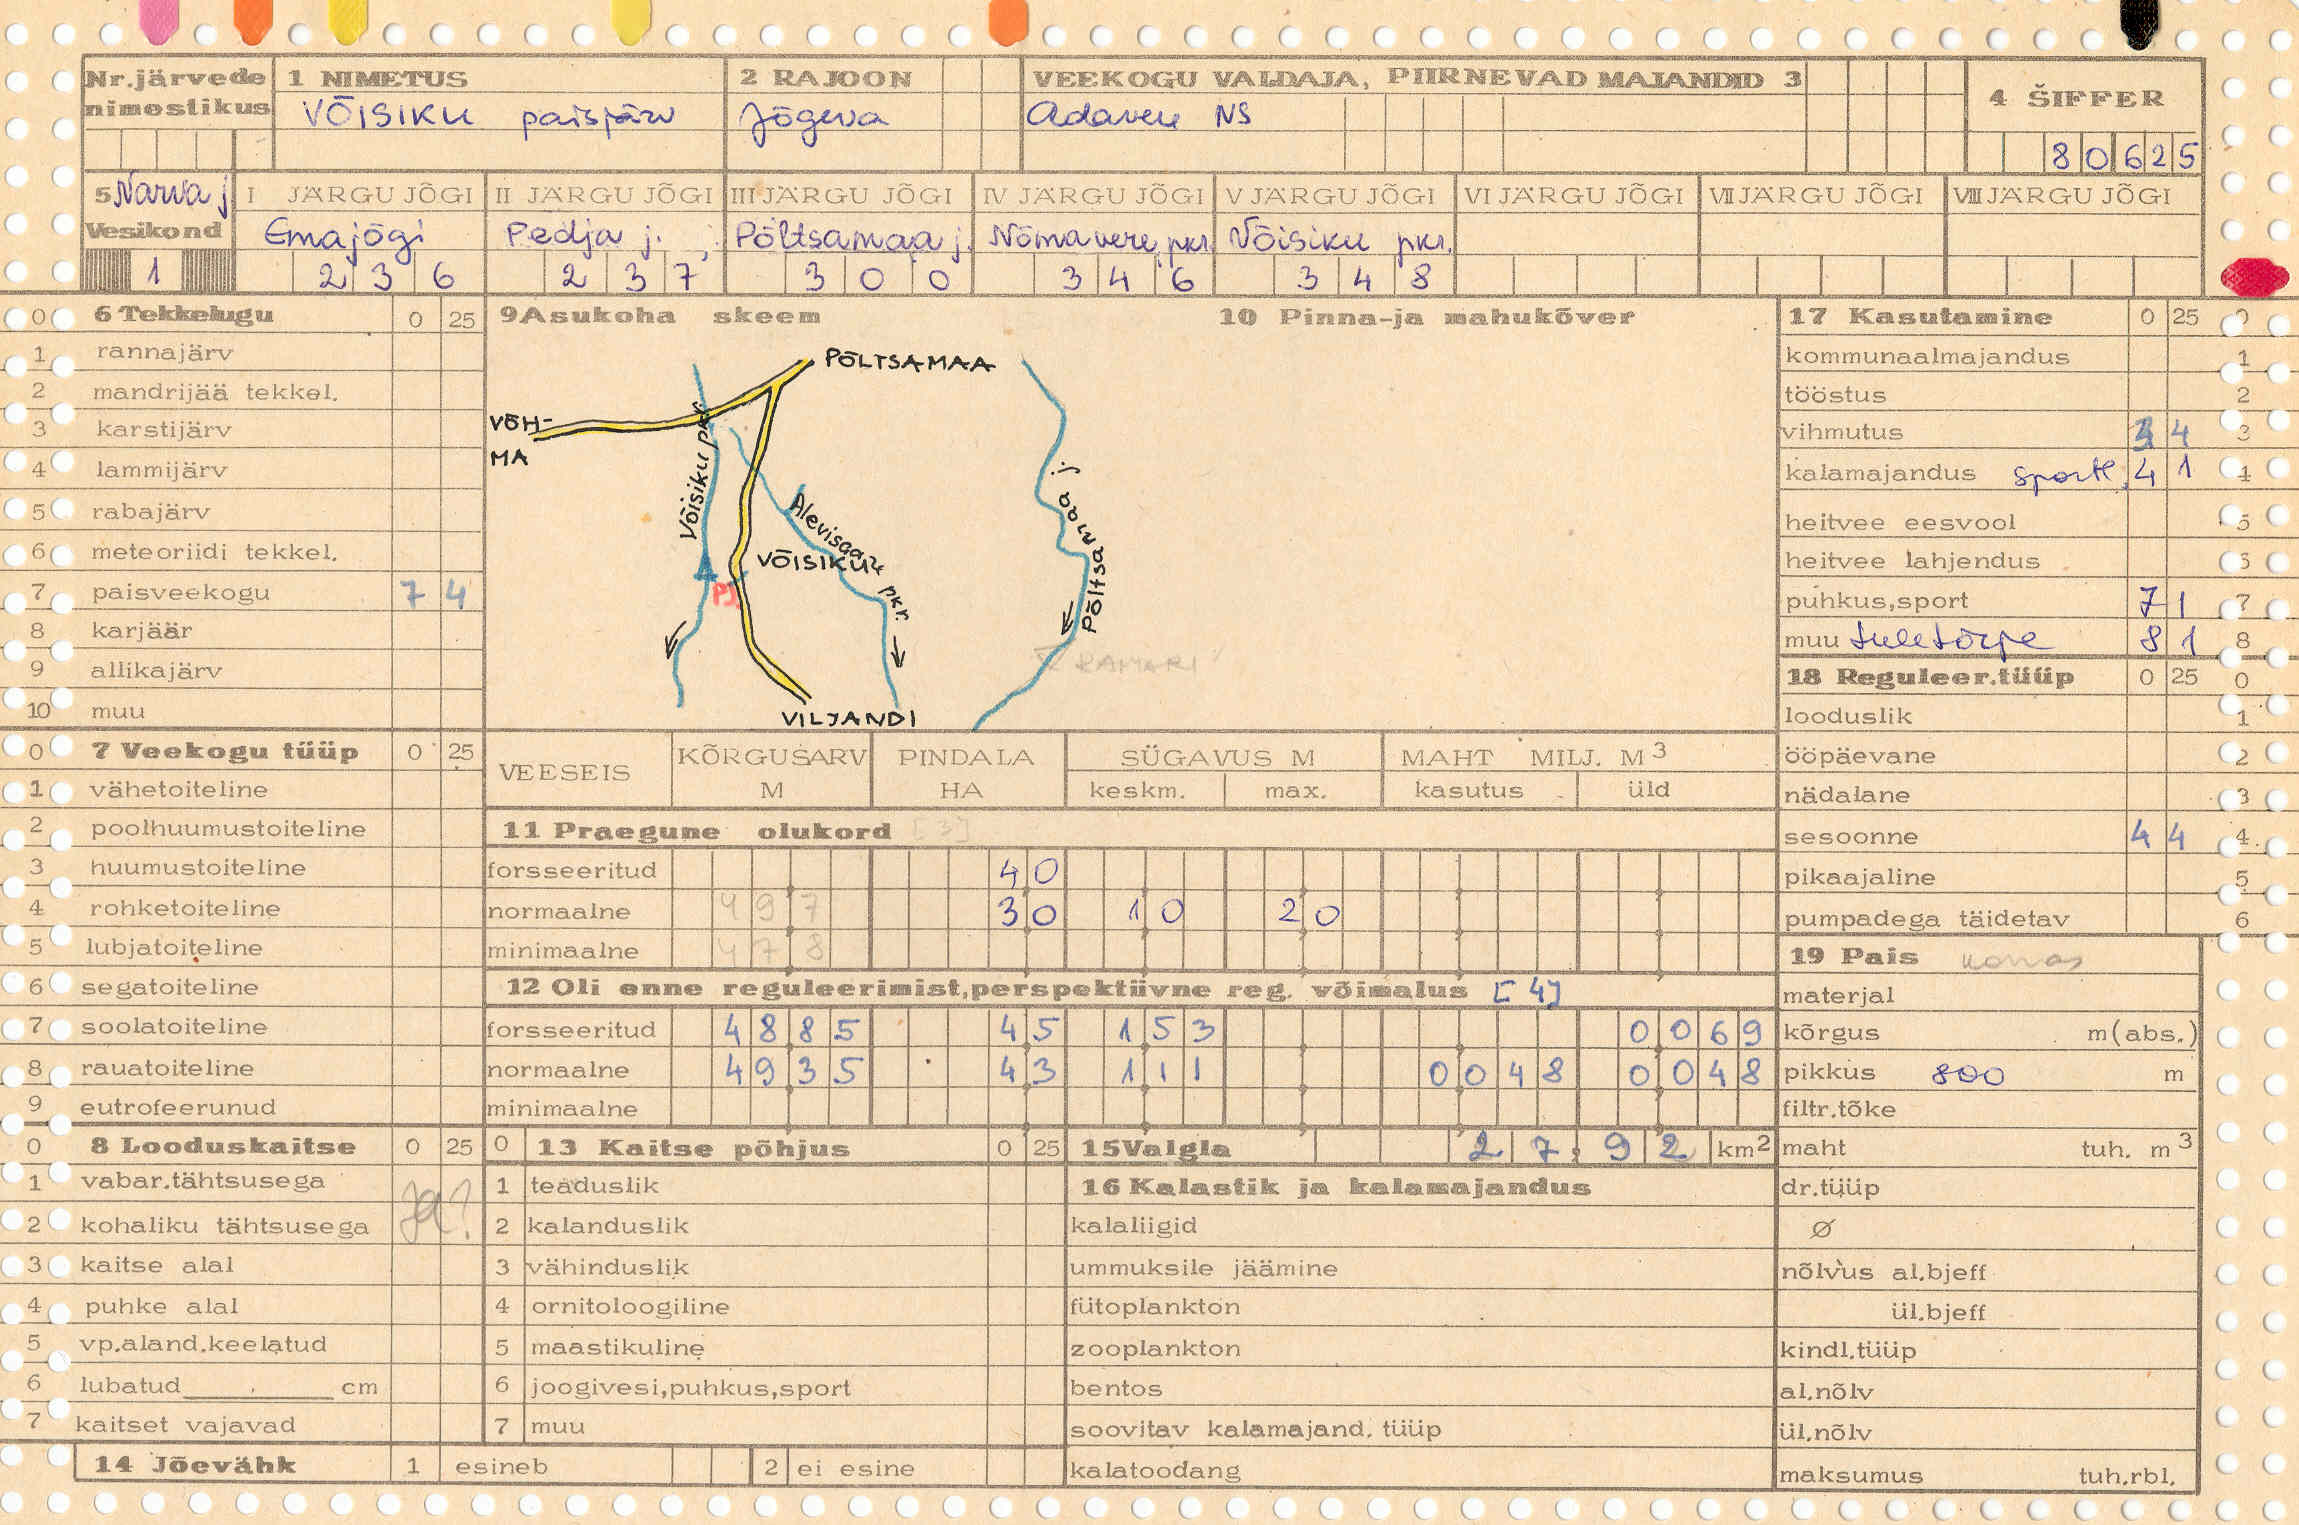 Nr.järvede nimestikus
1 NIMETUS
VÕISIKU paisjärv
2 RAJOON
Jõgeva
VEEKOGU VALDAJA, PIIRNEVAD MAJANDID 3
Adavere NS
4 ŠIFFER
80625
5 Narva j
Vesikond
1
I JÄRGU JÕGI
Emajõgi
236
II JÄRGU JÕGI
Pedja j.
237
III JÄRGU JÕGI
Põltsamaa j.
300
IV JÄRGU JÕGI
Nõmavere pkr.
346
V JÄRGU JÕGI
Võisiku pkr.
348
VI JÄRGU JÕGI
VII JÄRGU JÕGI
VIII JÄRGU JÕGI
0 6 Tekkelugu 0 25
1 rannajärv
2 mandrijää tekkel.
3 karstijärv
4 lammijärv
5 rabajärv
6 meteoriidi tekkel.
7 paisveekogu 7 4
8 karjäär
9 allikajärv
10 muu
0 7 Veekogu tüüp 0 25
1 vähetoiteline
2 poolhuumustoiteline
3 huumustoiteline
4 rohketoiteline
5 lubjatoiteline
6 segatoiteline
7 soolatoiteline
8 rauatoiteline
9 eutrofeerunud
0 8 Looduskaitse 0 25
1 vabar.tähtsusega
ja?
2 kohaliku tähtsusega
3 kaitse alal
4 puhke alal
5 vp.aland.keelatud
6 lubatud cm
7 kaitset vajavad
9 Asukoha skeem
PÕLTSAMAA
VÕH-
MA
Võisiku pkr.
Alevisaare pkr.
VÕISIKU
PJ.
VILJANDI
Põltsamaa j.
KAMARI
10 Pinna-ja mahukõver
VEESEIS KÕRGUSARV M PINDALA HA SÜGAVUS M keskm. max. MAHT MILJ. M3 kasutus üld
11 Praegune olukord [3]
forsseeritud 40
normaalne 497 30 10 20
minimaalne 478
12 Oli enne reguleerimist,perspektiivne reg. võimalus [4]
forsseeritud 4885 45 153 0069
normaalne 4935 43 111 0048 0048
minimaalne
0 13 Kaitse põhjus 0 25
1 teaduslik
2 kalanduslik
3 vähinduslik
4 ornitoloogiline
5 maastikuline
6 joogivesi,puhkus,sport
7 muu
14 Jõevähk 1 esineb 2 ei esine
15 Valgla 27,92 km2
16 Kalastik ja kalamajandus
kalaliigid
ummuksile jäämine
fütoplankton
zooplankton
bentos
soovitav kalamajand. tüüp
kalatoodang
17 Kasutamine 0 25 0
kommunaalmajandus 1
tööstus 2
vihmutus 3 4 3
kalamajandus sportl. 4 1 4
heitvee eesvool 5
heitvee lahjendus 6
puhkus,sport 7 1 7
muu tuletõrje 8 1 8
18 Reguleer.tüüp 0 25 0
looduslik 1
ööpäevane 2
nädalane 3
sesoonne 4 4 4
pikaajaline 5
pumpadega täidetav 6
19 Pais
materjal
kõrgus m(abs.)
pikkus 800 m
filtr.tõke
maht tuh. m3
dr.tüüp
Ø
nõlvus al.bjeff
ül.bjeff
kindl.tüüp
al.nõlv
ül.nõlv
maksumus tuh.rbl.